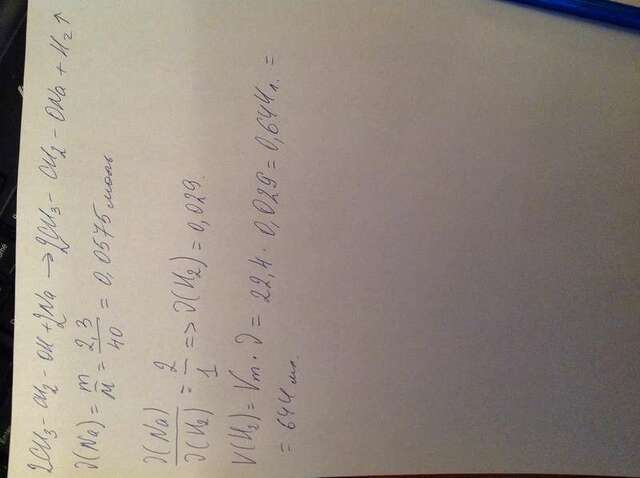 2CH₃-CH₂-OH + 2Na → 2CH₃-CH₂-ONa + H₂↑
ν(Na) = m/M = 2,3/40 = 0,0575 моль
ν(Na)/ν(H₂) = 2/1 => ν(H₂) = 0,029.
V(H₂) = Vm · ν = 22,4 · 0,029 = 0,644 л. =
= 644 мл.